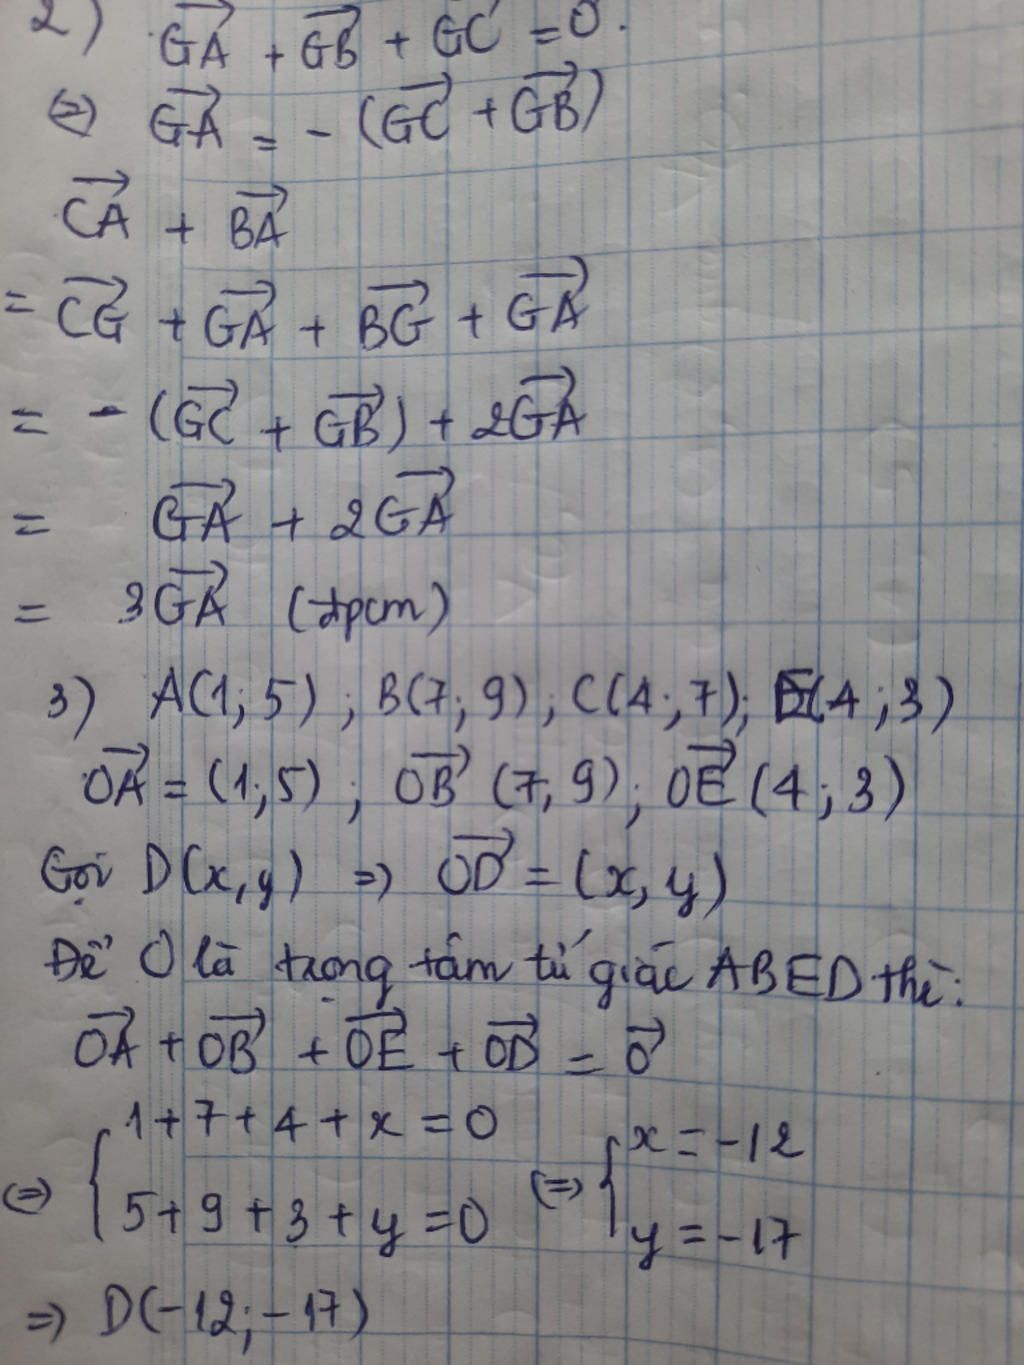 2) GA→ + GB→ + GC→ = 0→.
(=) GA→ = - (GC→ + GB→)
CA→ + BA→
= CG→ + GA→ + BG→ + GA→
= - (GC→ + GB→) + 2GA→
= GA→ + 2GA→
= 3GA→ (đpcm)
3) A(1; 5) ; B(7; 9) ; C(4; 7); E(4 ; 3)
OA→ = (1; 5) ; OB→ (7, 9); OE→ (4 ; 3)
Gọi D(x, y) => OD→ = (x, y)
Để O là trọng tâm tứ giác ABED thì:
OA→ + OB→ + OE→ + OD→ = 0→
(=) { 1 + 7 + 4 + x = 0 (=) { x = -12
5 + 9 + 3 + y = 0 y = -17
=> D(-12; -17)